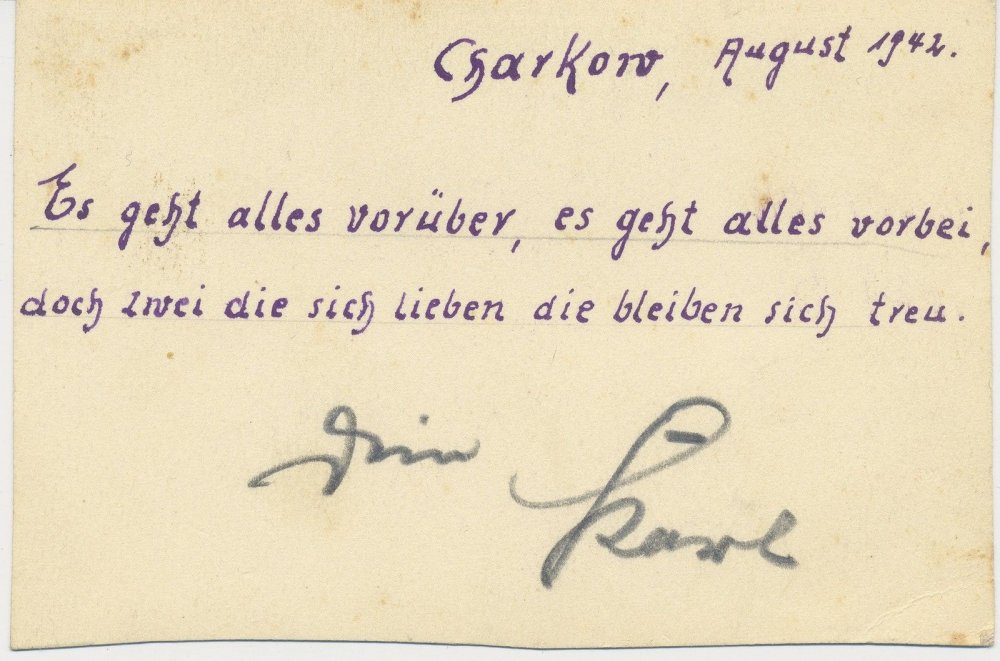 Charkow, August 1942.
Es geht alles vorüber, es geht alles vorbei,
doch zwei die sich lieben die bleiben sich treu.
Dein Karl